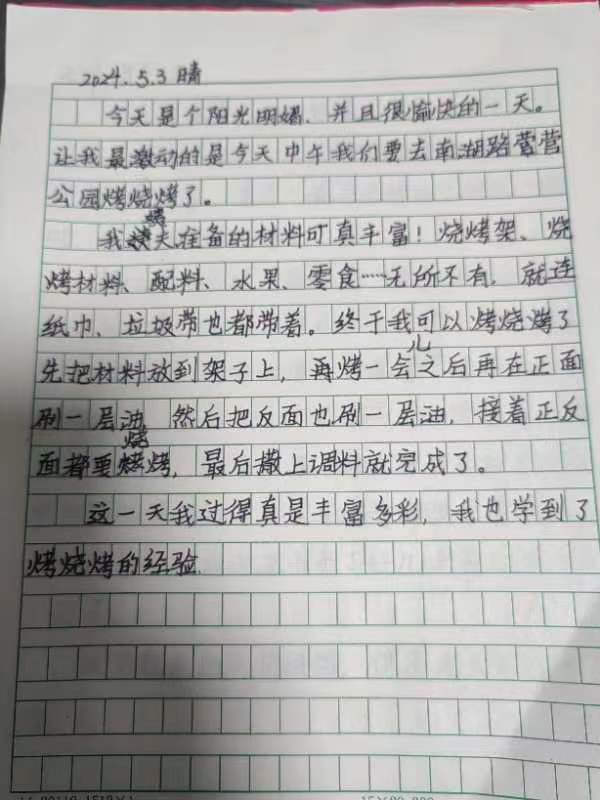 2024.5.3 晴
今天是个阳光明媚、并且很愉快的一天。
让我最激动的是今天中午我们要去南湖路露营
公园烤烧烤了。
我今天准备的材料可真丰富！烧烤架、烧
烤材料、配料、水果、零食……无所不有，就连
纸巾、垃圾带也都带着。终于我可以烤烧烤了
先把材料放到架子上，再烤一会儿之后再在正面
刷一层油，然后把反面也刷一层油，接着正反
面都要烧烤，最后撒上调料就完成了。
这一天我过得真是丰富多彩，我也学到了
烤烧烤的经验.